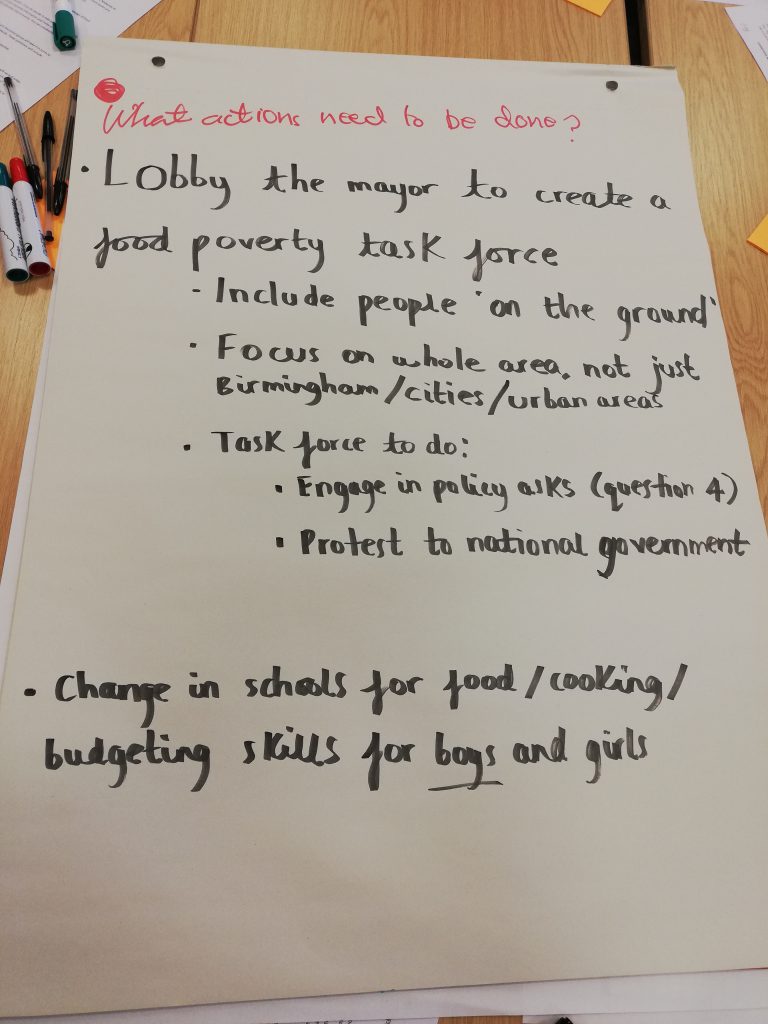 What actions need to be done?
• Lobby the mayor to create a
food poverty task force
- Include people 'on the ground'
• Focus on whole area, not just
Birmingham/cities/urban areas
• Task force to do:
• Engage in policy asks (question 4)
• Protest to national government
• Change in schools for food/cooking/
budgeting skills for boys and girls